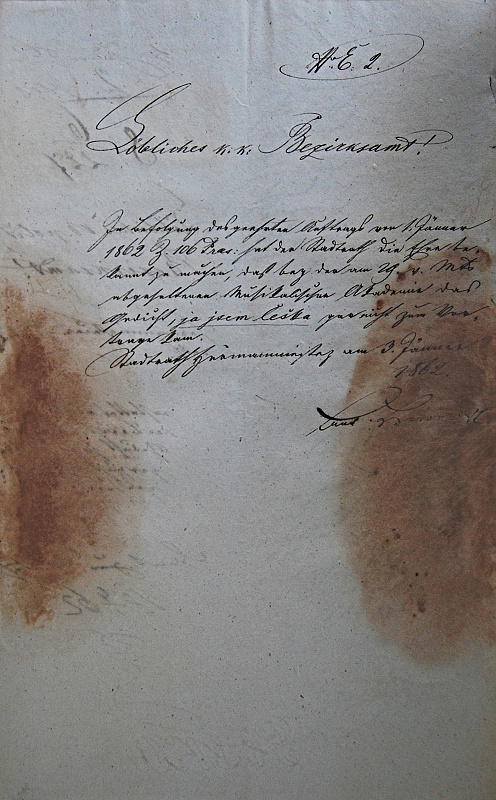 N. E. 2.
Löbliches k. k. Bezirksamt!
In Befolgung des geehrten Auftrags von 1. Jänner
1862 Z 106 Praes: hat der Stadtrath die Ehre be-
kannt zu machen, daß bey der am 29. v. Mts
abgehaltenen Musikalischen Akademie das
Gedicht ja jsem Češka gar nicht zum Vor-
trage kam.
Stadtrath Heřmanměstez am 3. Jänner
1862